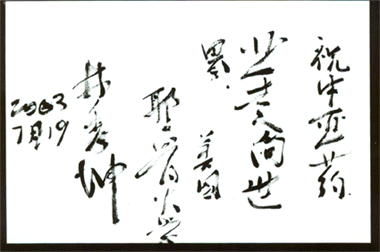 祝中药
业走向世
界.
美国
耶鲁大学
林秀坤
2003
7月19